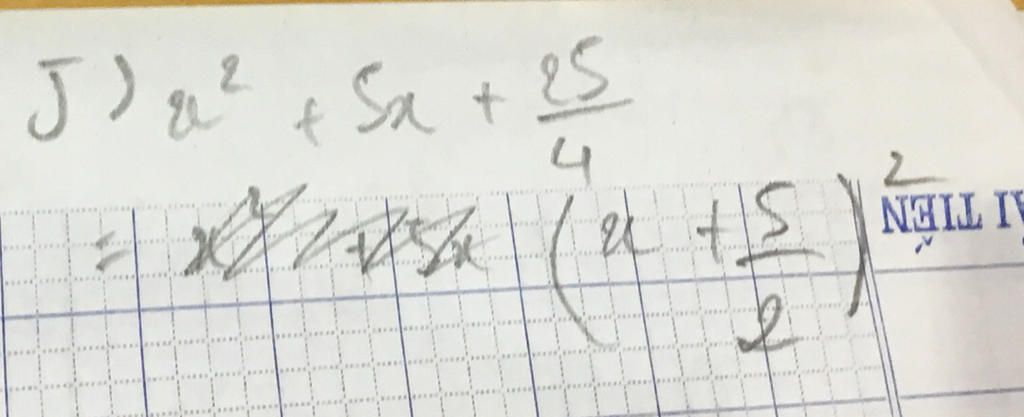 J) x² + 5x + 25/4
= (x + 5/2)²
ẢI TIẾN